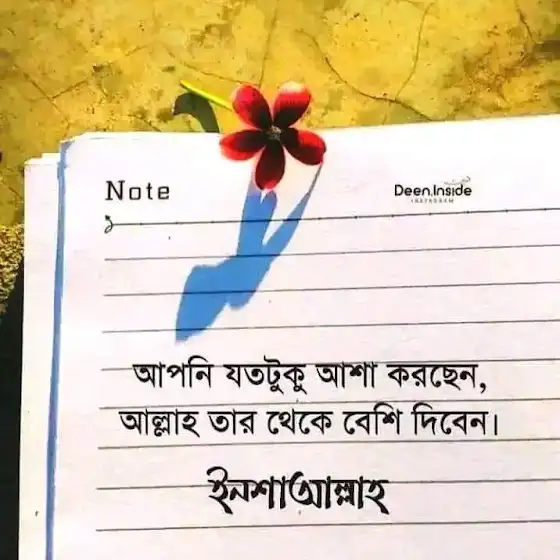 Note
Deen.Inside
INSTAGRAM
আপনি যতটুকু আশা করছেন,
আল্লাহ তার থেকে বেশি দিবেন।
ইনশাআল্লাহ